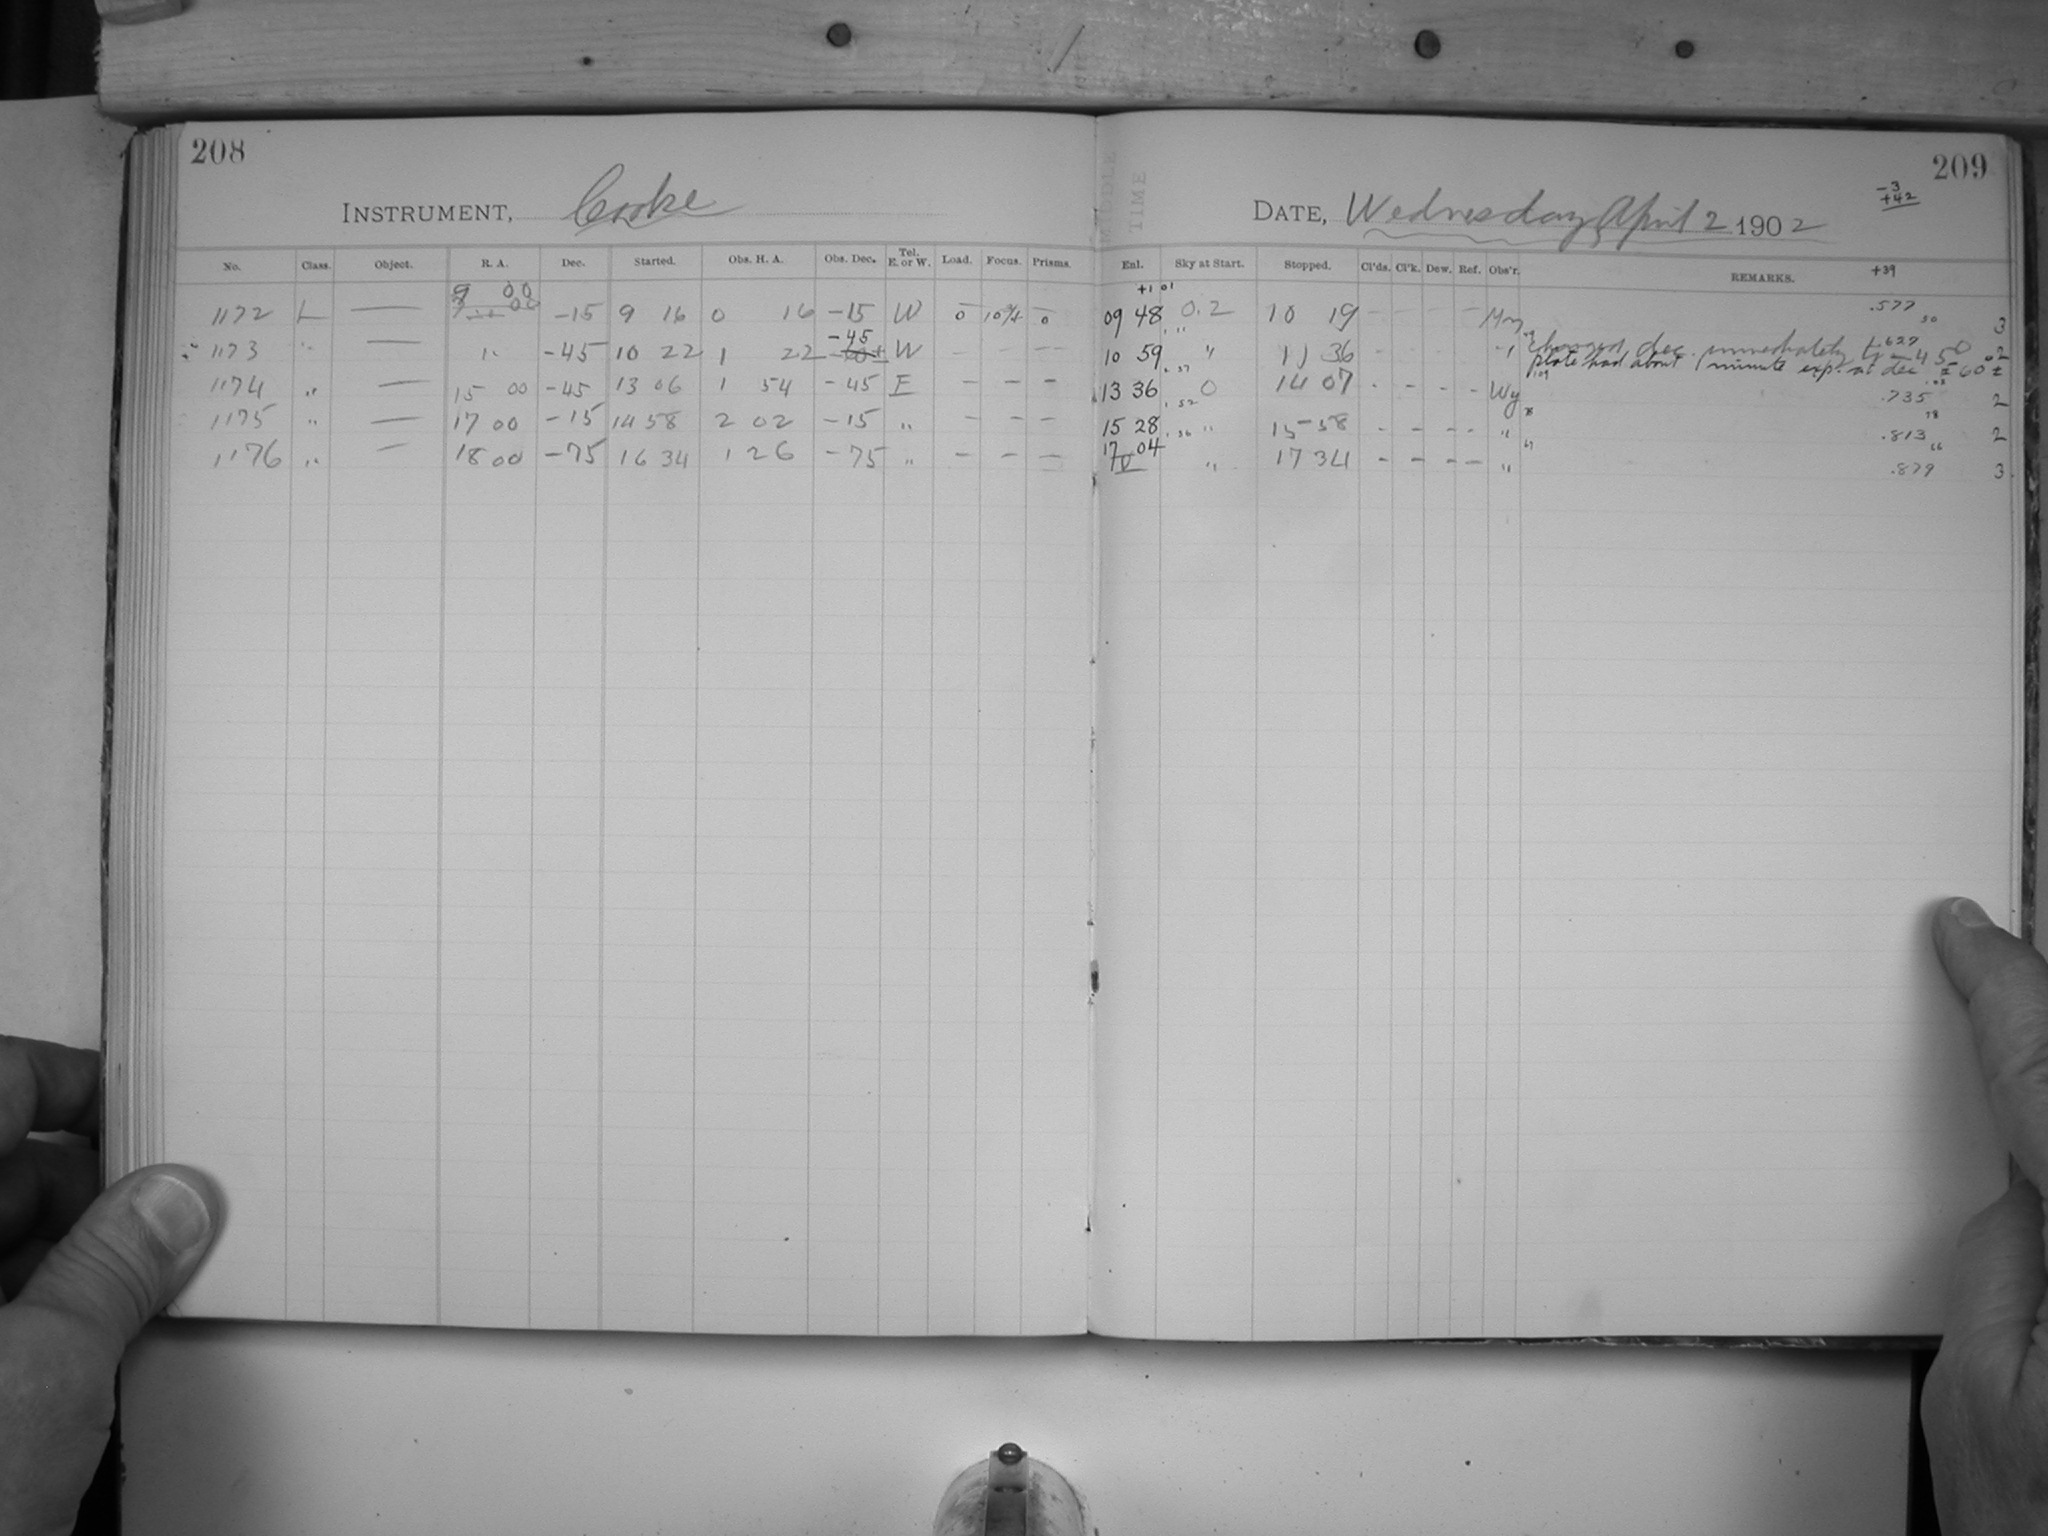 208
INSTRUMENT, Cooke
No. Class. Object. R. A. Dec. Started. Obs. H. A. Obs. Dec. Tel. E. or W. Load. Focus. Prisms.
9 00
1172 L — -15 9 16 0 16 -15 W 0 0
-45
1173 " — " -45 10 22 1 22 W - - -
1174 " — 15 00 -45 13 06 1 54 -45 E - - -
1175 " — 17 00 -15 14 58 2 02 -15 " - - -
1176 " — 18 00 -75 16 34 1 26 -75 " - - -
209
MIDDLE
TIME
-3
+42
DATE, Wednesday April 2 1902
Enl. Sky at Start. Stopped. Cl'ds. Cl'k. Dew. Ref. Obs'r. REMARKS. +39
+1 01
09 48 0.2 10 19 - - - - .577 50 3
10 59 " 11 36 - - - - changed dec. immediately to -45 0 .627 2
plate had about 1 minute exp. at dec ± 60 ±
13 36 0 14 07 - - - - Wy .735 2
15 28 " 15 58 - - - - " .813 2
17 04
" 17 34 - - - - " .879 3